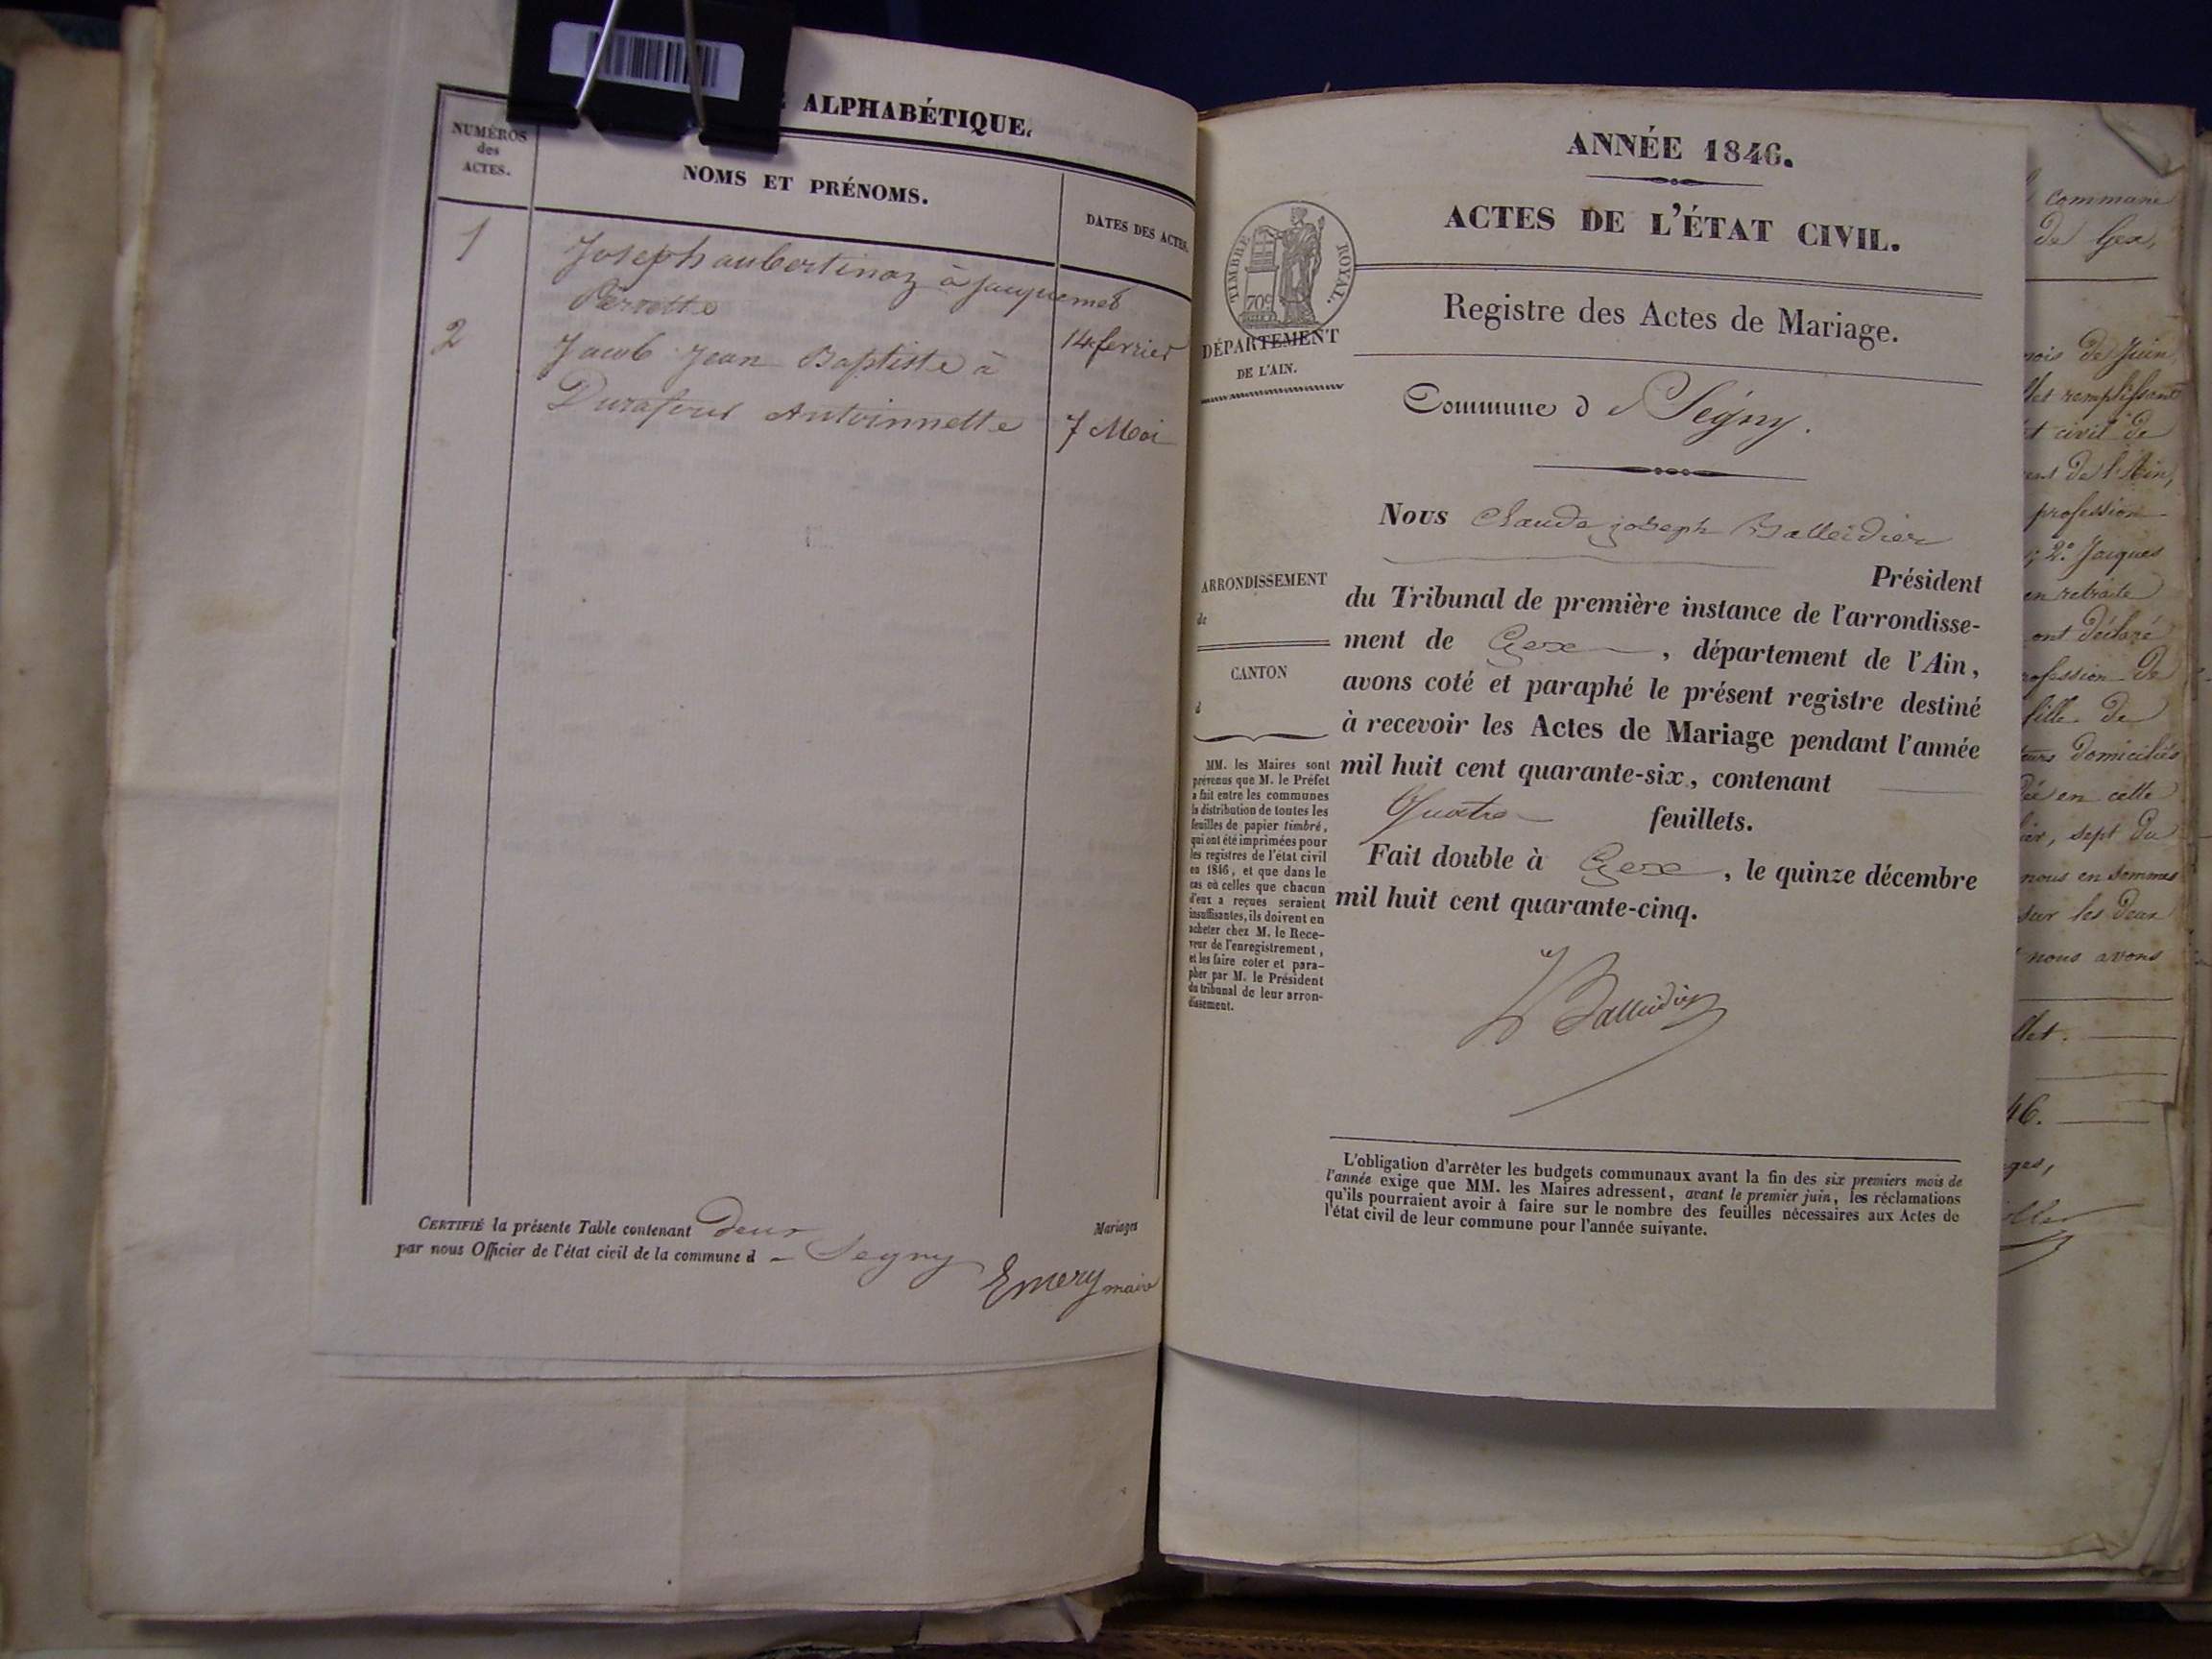 ALPHABÉTIQUE.
NUMÉROS
des
ACTES.
NOMS ET PRÉNOMS.
DATES DES ACTES.
1
Joseph aubertinaz à Jacquemet
Pernette
14 fevrier
2
Jacob Jean Baptiste à
Durafour Antoinnette
7 Mai
CERTIFIÉ la présente Table contenant Deux Mariages
par nous Officier de l'état civil de la commune d - Segny
Emery maire
ANNÉE 1846.
ACTES DE L'ÉTAT CIVIL.
TIMBRE ROYAL.
70c
DÉPARTEMENT
DE L'AIN.
Registre des Actes de Mariage.
Commune de Ségny.
ARRONDISSEMENT
de
CANTON
d
MM. les Maires sont
prévenus que M. le Préfet
a fait entre les communes
la distribution de toutes les
feuilles de papier timbré,
qui ont été imprimées pour
les registres de l'état civil
en 1846, et que dans le
cas où celles que chacun
d'eux a reçues seraient
insuffisantes, ils doivent en
acheter chez M. le Rece-
veur de l'enregistrement,
et les faire coter et para-
pher par M. le Président
du tribunal de leur arron-
dissement.
Nous Claude joseph Balleidier
Président
du Tribunal de première instance de l'arrondisse-
ment de Gex, département de l'Ain,
avons coté et paraphé le présent registre destiné
à recevoir les Actes de Mariage pendant l'année
mil huit cent quarante-six, contenant
Quatre feuillets.
Fait double à Gex, le quinze décembre
mil huit cent quarante-cinq.
Balleidier
L'obligation d'arrêter les budgets communaux avant la fin des six premiers mois de
l'année exige que MM. les Maires adressent, avant le premier juin, les réclamations
qu'ils pourraient avoir à faire sur le nombre des feuilles nécessaires aux Actes de
l'état civil de leur commune pour l'année suivante.
commune
de Gex,
mois de Juin
remplissant
civil de
de l'Ain,
profession
2º. Jacques
en retraite
ont déclaré
profession de
fille de
domiciliés
en cette
sept du
nous en sommes
sur les deux
nous avons
46.